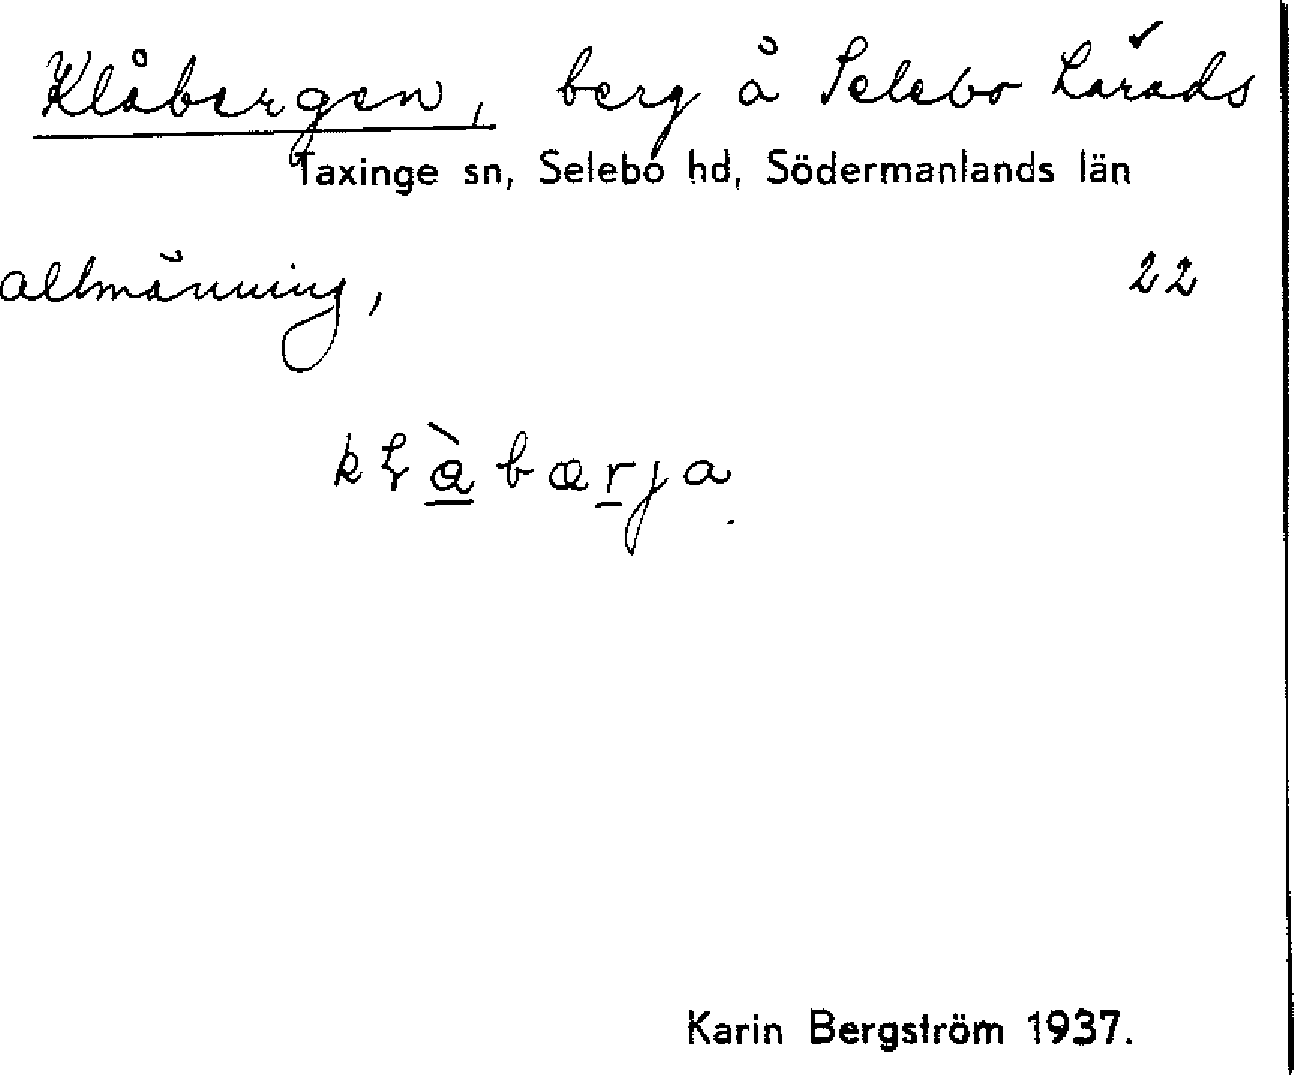 Klåbergen, berg å Selebo härads
Taxinge sn, Selebo hd, Södermanlands län
allmänning, 22
kɬàbærja.
Karin Bergström 1937.